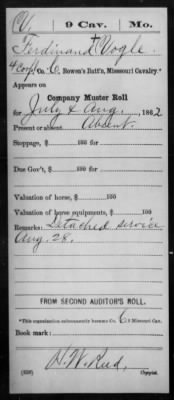 V | 9 Cav. | Mo.
Ferdinand † Vogle.
4 Corp, Co. C, Bowen's Batt'n, Missouri Cavalry.*
Appears on
Company Muster Roll
for July & Aug., 1862
Present or absent Absent.
Stoppage, $ 100 for
Due Gov't, $ 100 for
Valuation of horse, $ 100
Valuation of horse equipments, $ 100
Remarks: Detached service
Aug. 28.
FROM SECOND AUDITOR'S ROLL.
*This organization subsequently became Co. C, 9 Missouri Cav.
Book mark:
H. W. Reed,
Copyist.